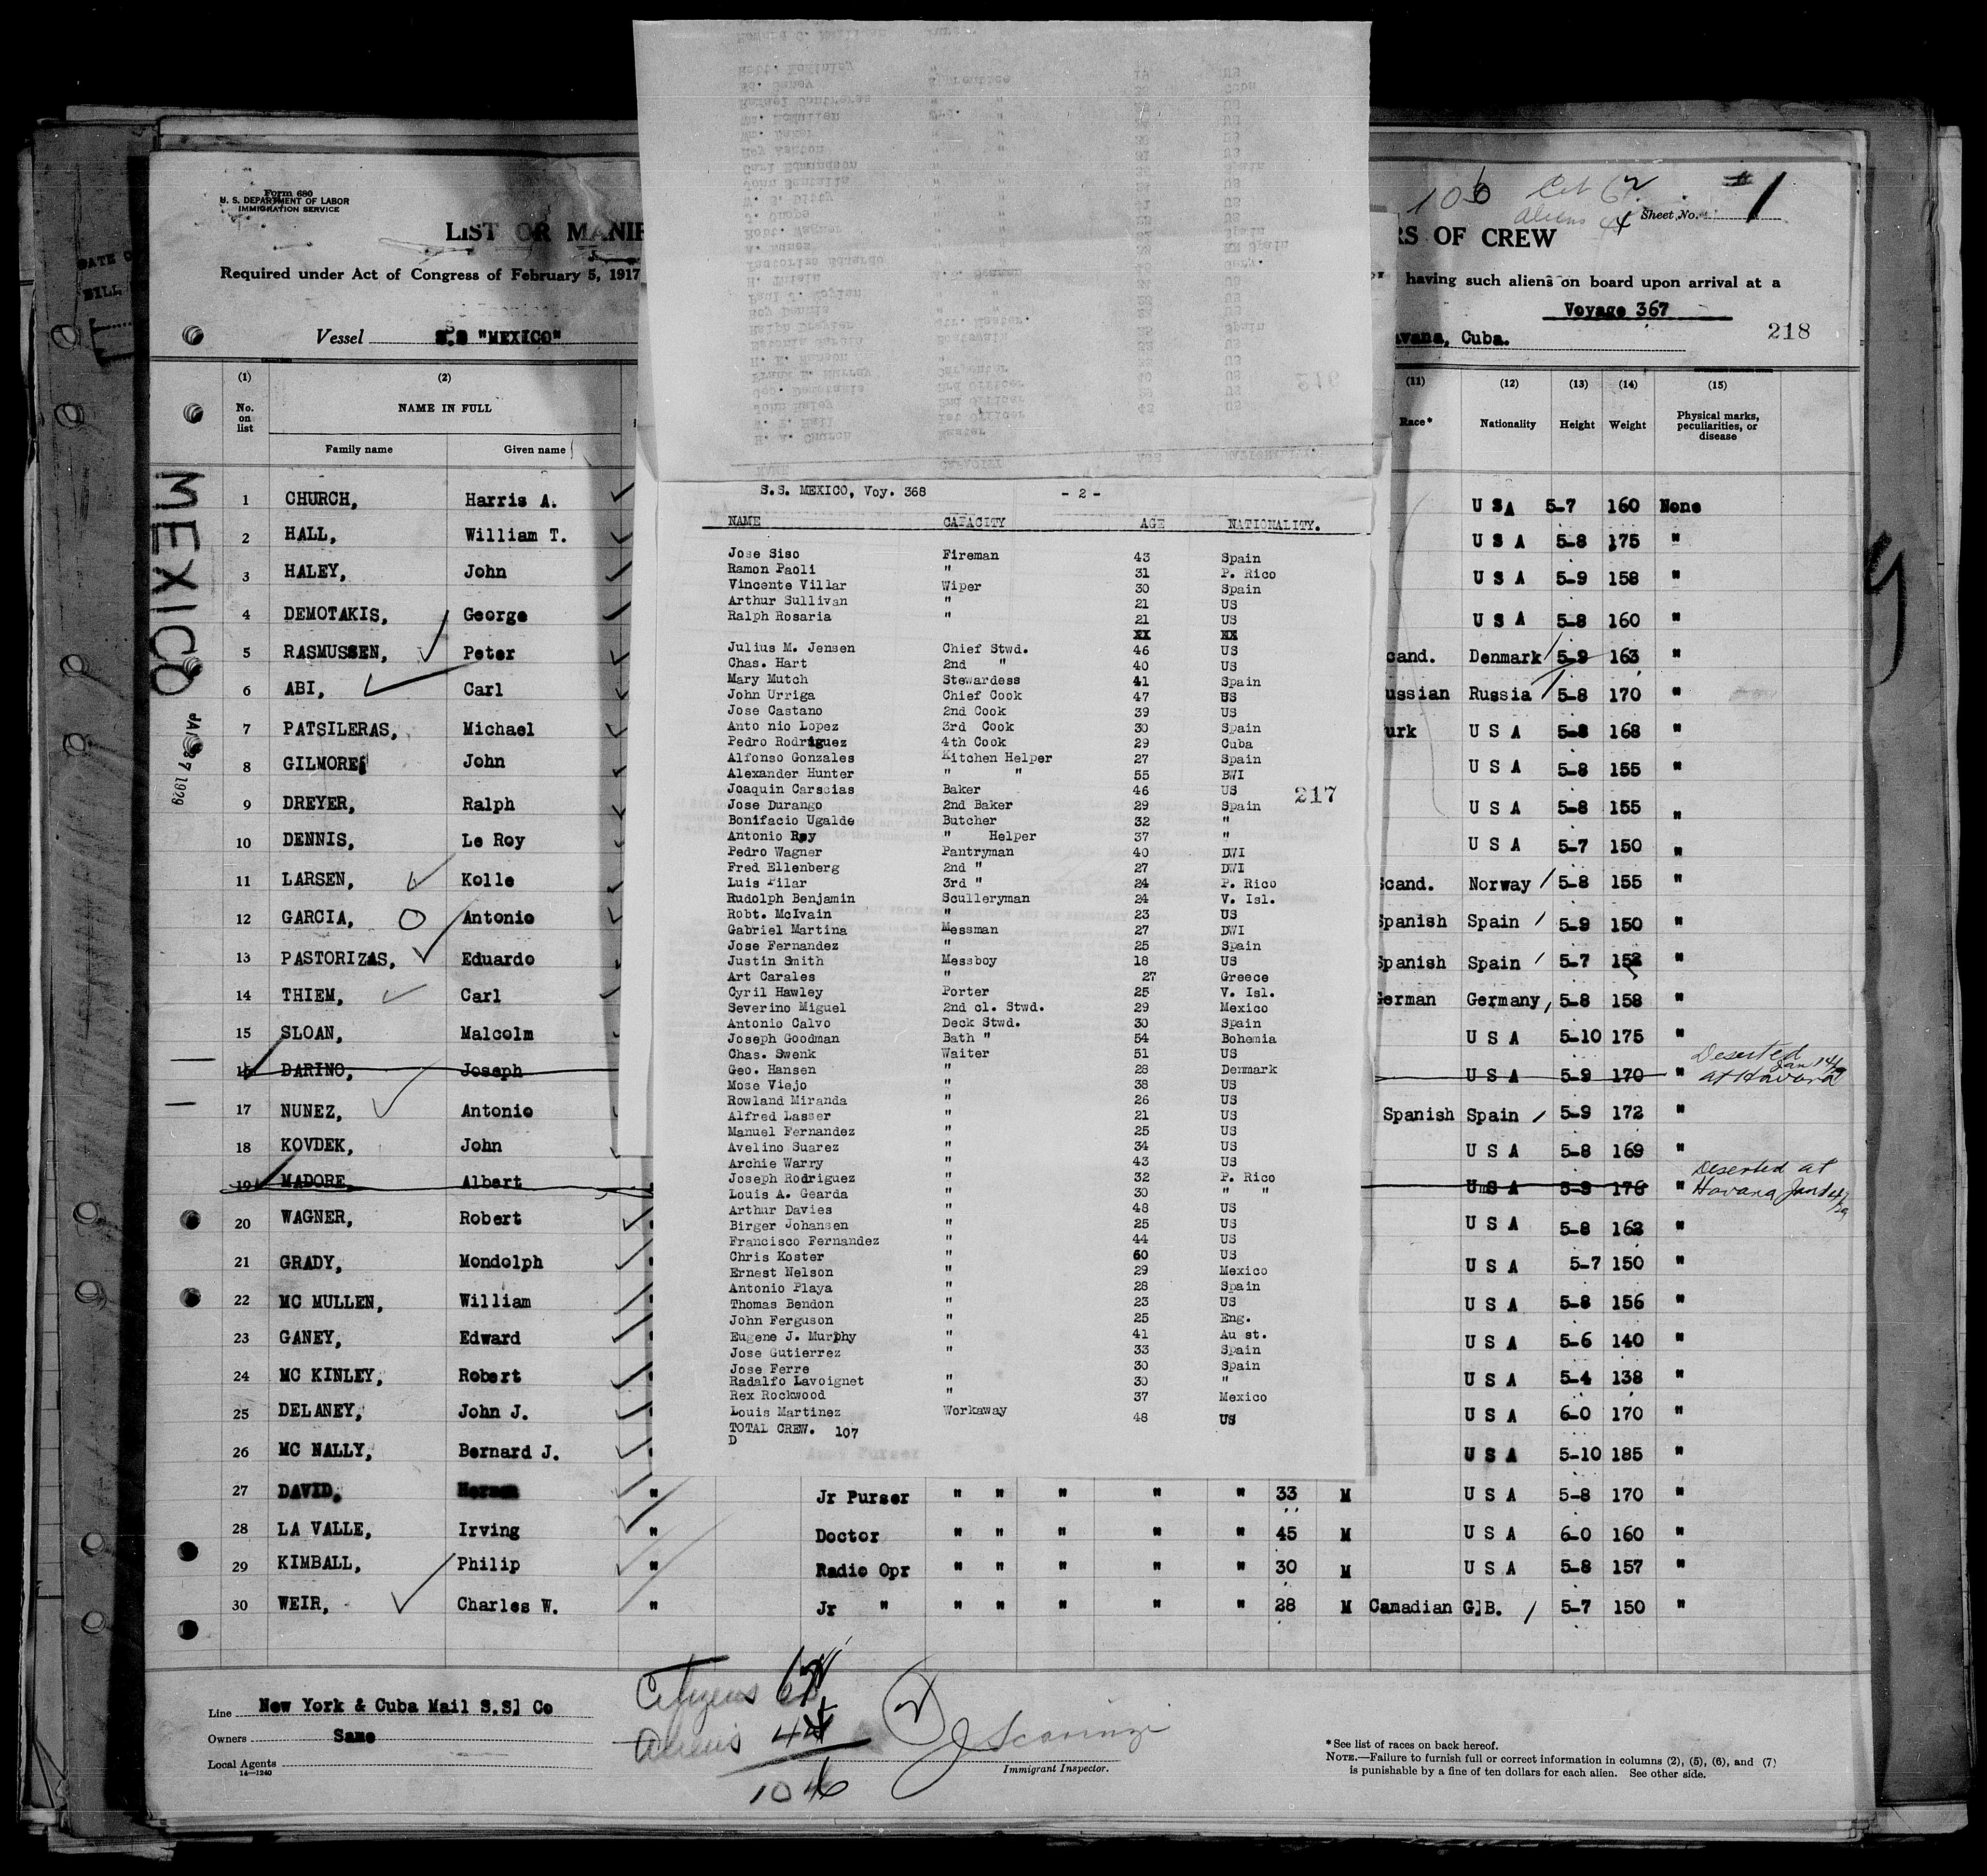 Form 680
U. S. DEPARTMENT OF LABOR
IMMIGRATION SERVICE
LIST OR MANIF
RS OF CREW
Sheet No. 1
Required under Act of Congress of February 5, 1917
having such aliens on board upon arrival at a
Voyage 367
Vessel S.S "MEXICO"
avana, Cuba.
218
(1) (2) (11) (12) (13) (14) (15)
No. on list NAME IN FULL Race* Nationality Height Weight Physical marks, peculiarities, or disease
Family name Given name
MEXICO
1 CHURCH, Harris A. U S A 5-7 160 None
2 HALL, William T. U S A 5-8 175 "
3 HALEY, John U S A 5-9 158 "
4 DEMOTAKIS, George U S A 5-8 160 "
5 RASMUSSEN, Peter cand. Denmark 5-9 163 "
6 ABI, Carl ussian Russia 5-8 170 "
7 PATSILERAS, Michael urk U S A 5-8 168 "
8 GILMORE, John U S A 5-8 155 "
9 DREYER, Ralph U S A 5-8 155 "
10 DENNIS, Le Roy U S A 5-7 150 "
11 LARSEN, Kolle Scand. Norway 5-8 155 "
12 GARCIA, Antonio Spanish Spain 5-9 150 "
13 PASTORIZAS, Eduardo Spanish Spain 5-7 152 "
14 THIEM, Carl German Germany 5-8 158 "
15 SLOAN, Malcolm U S A 5-10 175 "
16 DARINO, Joseph U S A 5-9 170 " Deserted Jan 14/29 at Havana
17 NUNEZ, Antonio Spanish Spain 5-9 172 "
18 KOVDEK, John U S A 5-8 169 "
19 MADORE, Albert U S A 5-9 176 " Deserted at Havana Jan 14/29
20 WAGNER, Robert U S A 5-8 162 "
21 GRADY, Mondolph U S A 5-7 150 "
22 MC MULLEN, William U S A 5-8 156 "
23 GANEY, Edward U S A 5-6 140 "
24 MC KINLEY, Robert U S A 5-4 138 "
25 DELANEY, John J. U S A 6-0 170 "
26 MC NALLY, Bernard J. U S A 5-10 185 "
27 DAVID, Herman " Jr Purser " " " " " 33 M U S A 5-8 170 "
28 LA VALLE, Irving " Doctor " " " " " 45 M U S A 6-0 160 "
29 KIMBALL, Philip " Radio Opr " " " " " 30 M U S A 5-8 157 "
30 WEIR, Charles W. " Jr " " " " " " 28 M Camadian G.B. 5-7 150 "
S.S. MEXICO, Voy. 368 - 2 -
NAME CAPACITY AGE NATIONALITY.
Jose Siso Fireman 43 Spain
Ramon Paoli " 31 P. Rico
Vincente Villar Wiper 30 Spain
Arthur Sullivan " 21 US
Ralph Rosaria " 21 US
XX XX
Julius M. Jensen Chief Stwd. 46 US
Chas. Hart 2nd " 40 US
Mary Mutch Stewardess 41 Spain
John Urriga Chief Cook 47 US
Jose Castano 2nd Cook 39 US
Anto nio Lopez 3rd Cook 30 Spain
Pedro Rodriguez 4th Cook 29 Cuba
Alfonso Gonzales Kitchen Helper 27 Spain
Alexander Hunter " " 55 BWI
Joaquin Carscias Baker 46 US
217
Jose Durango 2nd Baker 29 Spain
Bonifacio Ugalde Butcher 32 "
Antonio Roy " Helper 37 "
Pedro Wagner Pantryman 40 DWI
Fred Ellenberg 2nd " 27 DWI
Luis Pilar 3rd " 24 P. Rico
Rudolph Benjamin Sculleryman 24 V. Isl.
Robt. McIvain " 23 US
Gabriel Martina Messman 27 DWI
Jose Fernandez " 25 Spain
Justin Smith Messboy 18 US
Art Carales " 27 Greece
Cyril Hawley Porter 25 V. Isl.
Severino Miguel 2nd cl. Stwd. 29 Mexico
Antonio Calvo Deck Stwd. 30 Spain
Joseph Goodman Bath " 54 Bohemia
Chas. Swenk Waiter 51 US
Geo. Hansen " 28 Denmark
Mose Viejo " 38 US
Rowland Miranda " 26 US
Alfred Lasser " 21 US
Manuel Fernandez " 25 US
Avelino Suarez " 34 US
Archie Warry " 43 US
Joseph Rodriguez " 32 P. Rico
Louis A. Gearda " 30 " "
Arthur Davies " 48 US
Birger Johansen " 25 US
Francisco Fernandez " 44 US
Chris Koster " 60 US
Ernest Nelson " 29 Mexico
Antonio Playa " 28 Spain
Thomas Bendon " 23 US
John Ferguson " 25 Eng.
Eugene J. Murphy " 41 Au st.
Jose Gutierrez " 33 Spain
Jose Ferre 30 Spain
Radalfo Lavoignet " 30 "
Rex Rockwood " 37 Mexico
Louis Martinez Workaway 48 US
TOTAL CREW. 107
D
Line New York & Cuba Mail S.S. Co
Owners Same
Local Agents
14—1240
Citizens
Aliens 44
Immigrant Inspector.
*See list of races on back hereof.
NOTE.—Failure to furnish full or correct information in columns (2), (5), (6), and (7)
is punishable by a fine of ten dollars for each alien. See other side.